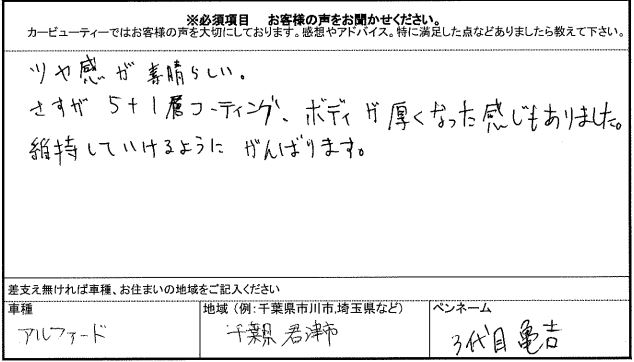 ※必須項目　お客様の声をお聞かせください。
カービューティーではお客様の声を大切にしております。感想やアドバイス。特に満足した点などありましたら教えて下さい。
ツヤ感が素晴らしい。
さすが 5+1層コーティング、ボディが厚くなった感じもありました。
維持していけるようにがんばります。
差支え無ければ車種、お住まいの地域をご記入ください
車種　地域（例：千葉県市川市,埼玉県など）　ペンネーム
アルファード　千葉県 君津市　3代目 亀吉